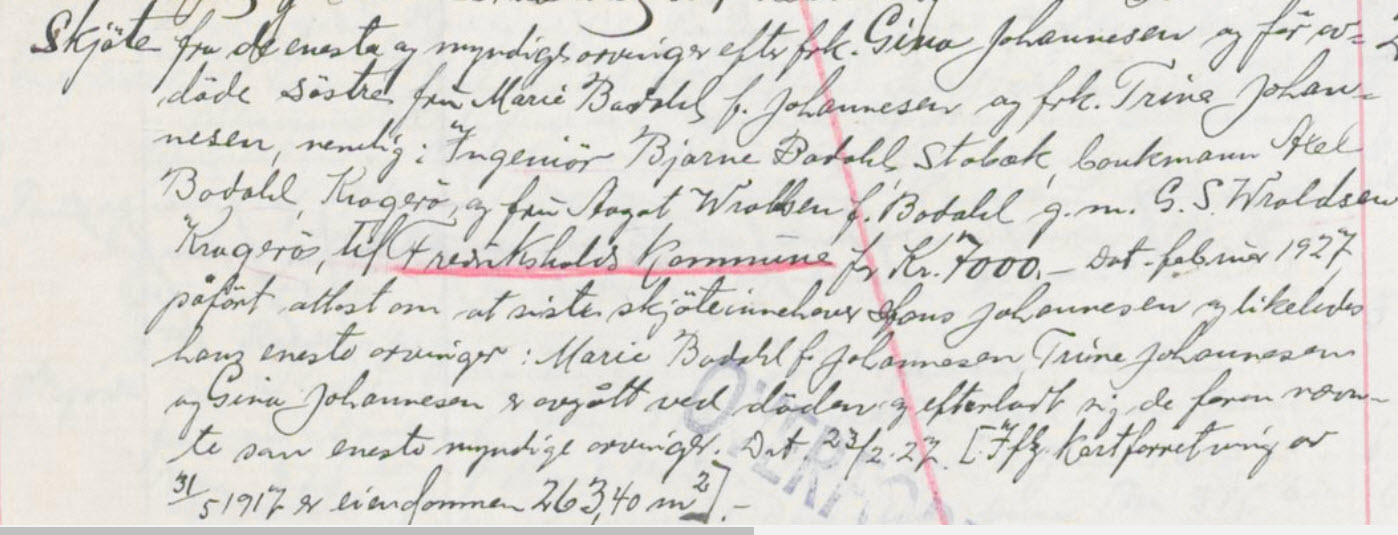 Skjöte fra de eneste og myndige arvinger efter frk. Gina Johannesen og før av-
döde söstre fru Marie Bødahl f. Johannesen og frk. Trine Johan-
nesen, nemlig: Ingeniör Bjarne Bødahl, Stabæk, bankmann Axel
Bødahl, Kragerö, og fru Aagot Wroldsen f. Bødahl g.m. G.S. Wroldsen
Kragerö, til Fredriksholds Kommune for Kr. 7000.- Dat. februar 1927
påfört attest om at siste skjöteinnehaver Hans Johannesen og likeledes
hans eneste arvinger: Marie Bødahl f. Johannesen Trine Johannesen
og Gina Johannesen er avgått ved döden og efterladt sig de foran nævn-
te som eneste myndige arvinger. Dat 23/2.27. [Ifg. kartforretning av
31/5 1917 er eiendommen 263,40 m2].-
OVERF